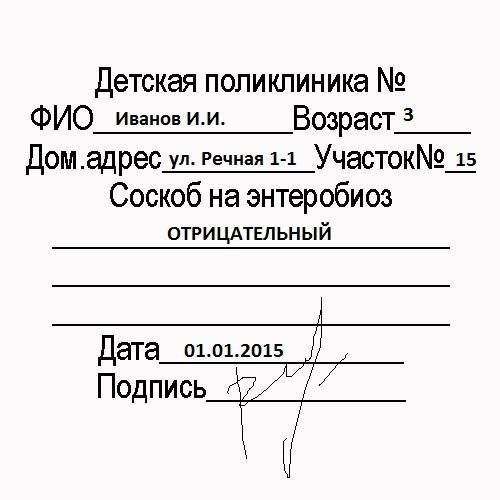 Детская поликлиника №
ФИО Иванов И.И. Возраст 3
Дом.адрес ул. Речная 1-1 Участок№ 15
Соскоб на энтеробиоз
ОТРИЦАТЕЛЬНЫЙ
Дата 01.01.2015
Подпись